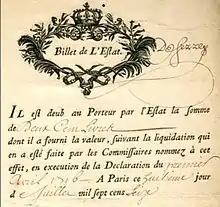 Billet de L'Estat.
IL est deub au Porteur par l'Estat la somme
de Deux Cens Livres
dont il a fourni la valeur, suivant la liquidation qui
en a esté faite par les Commissaires nommez à cet
effet, en execution de la Declaration du premier
Avril 1716 A Paris ce
jour
de Juillet mil sept cens